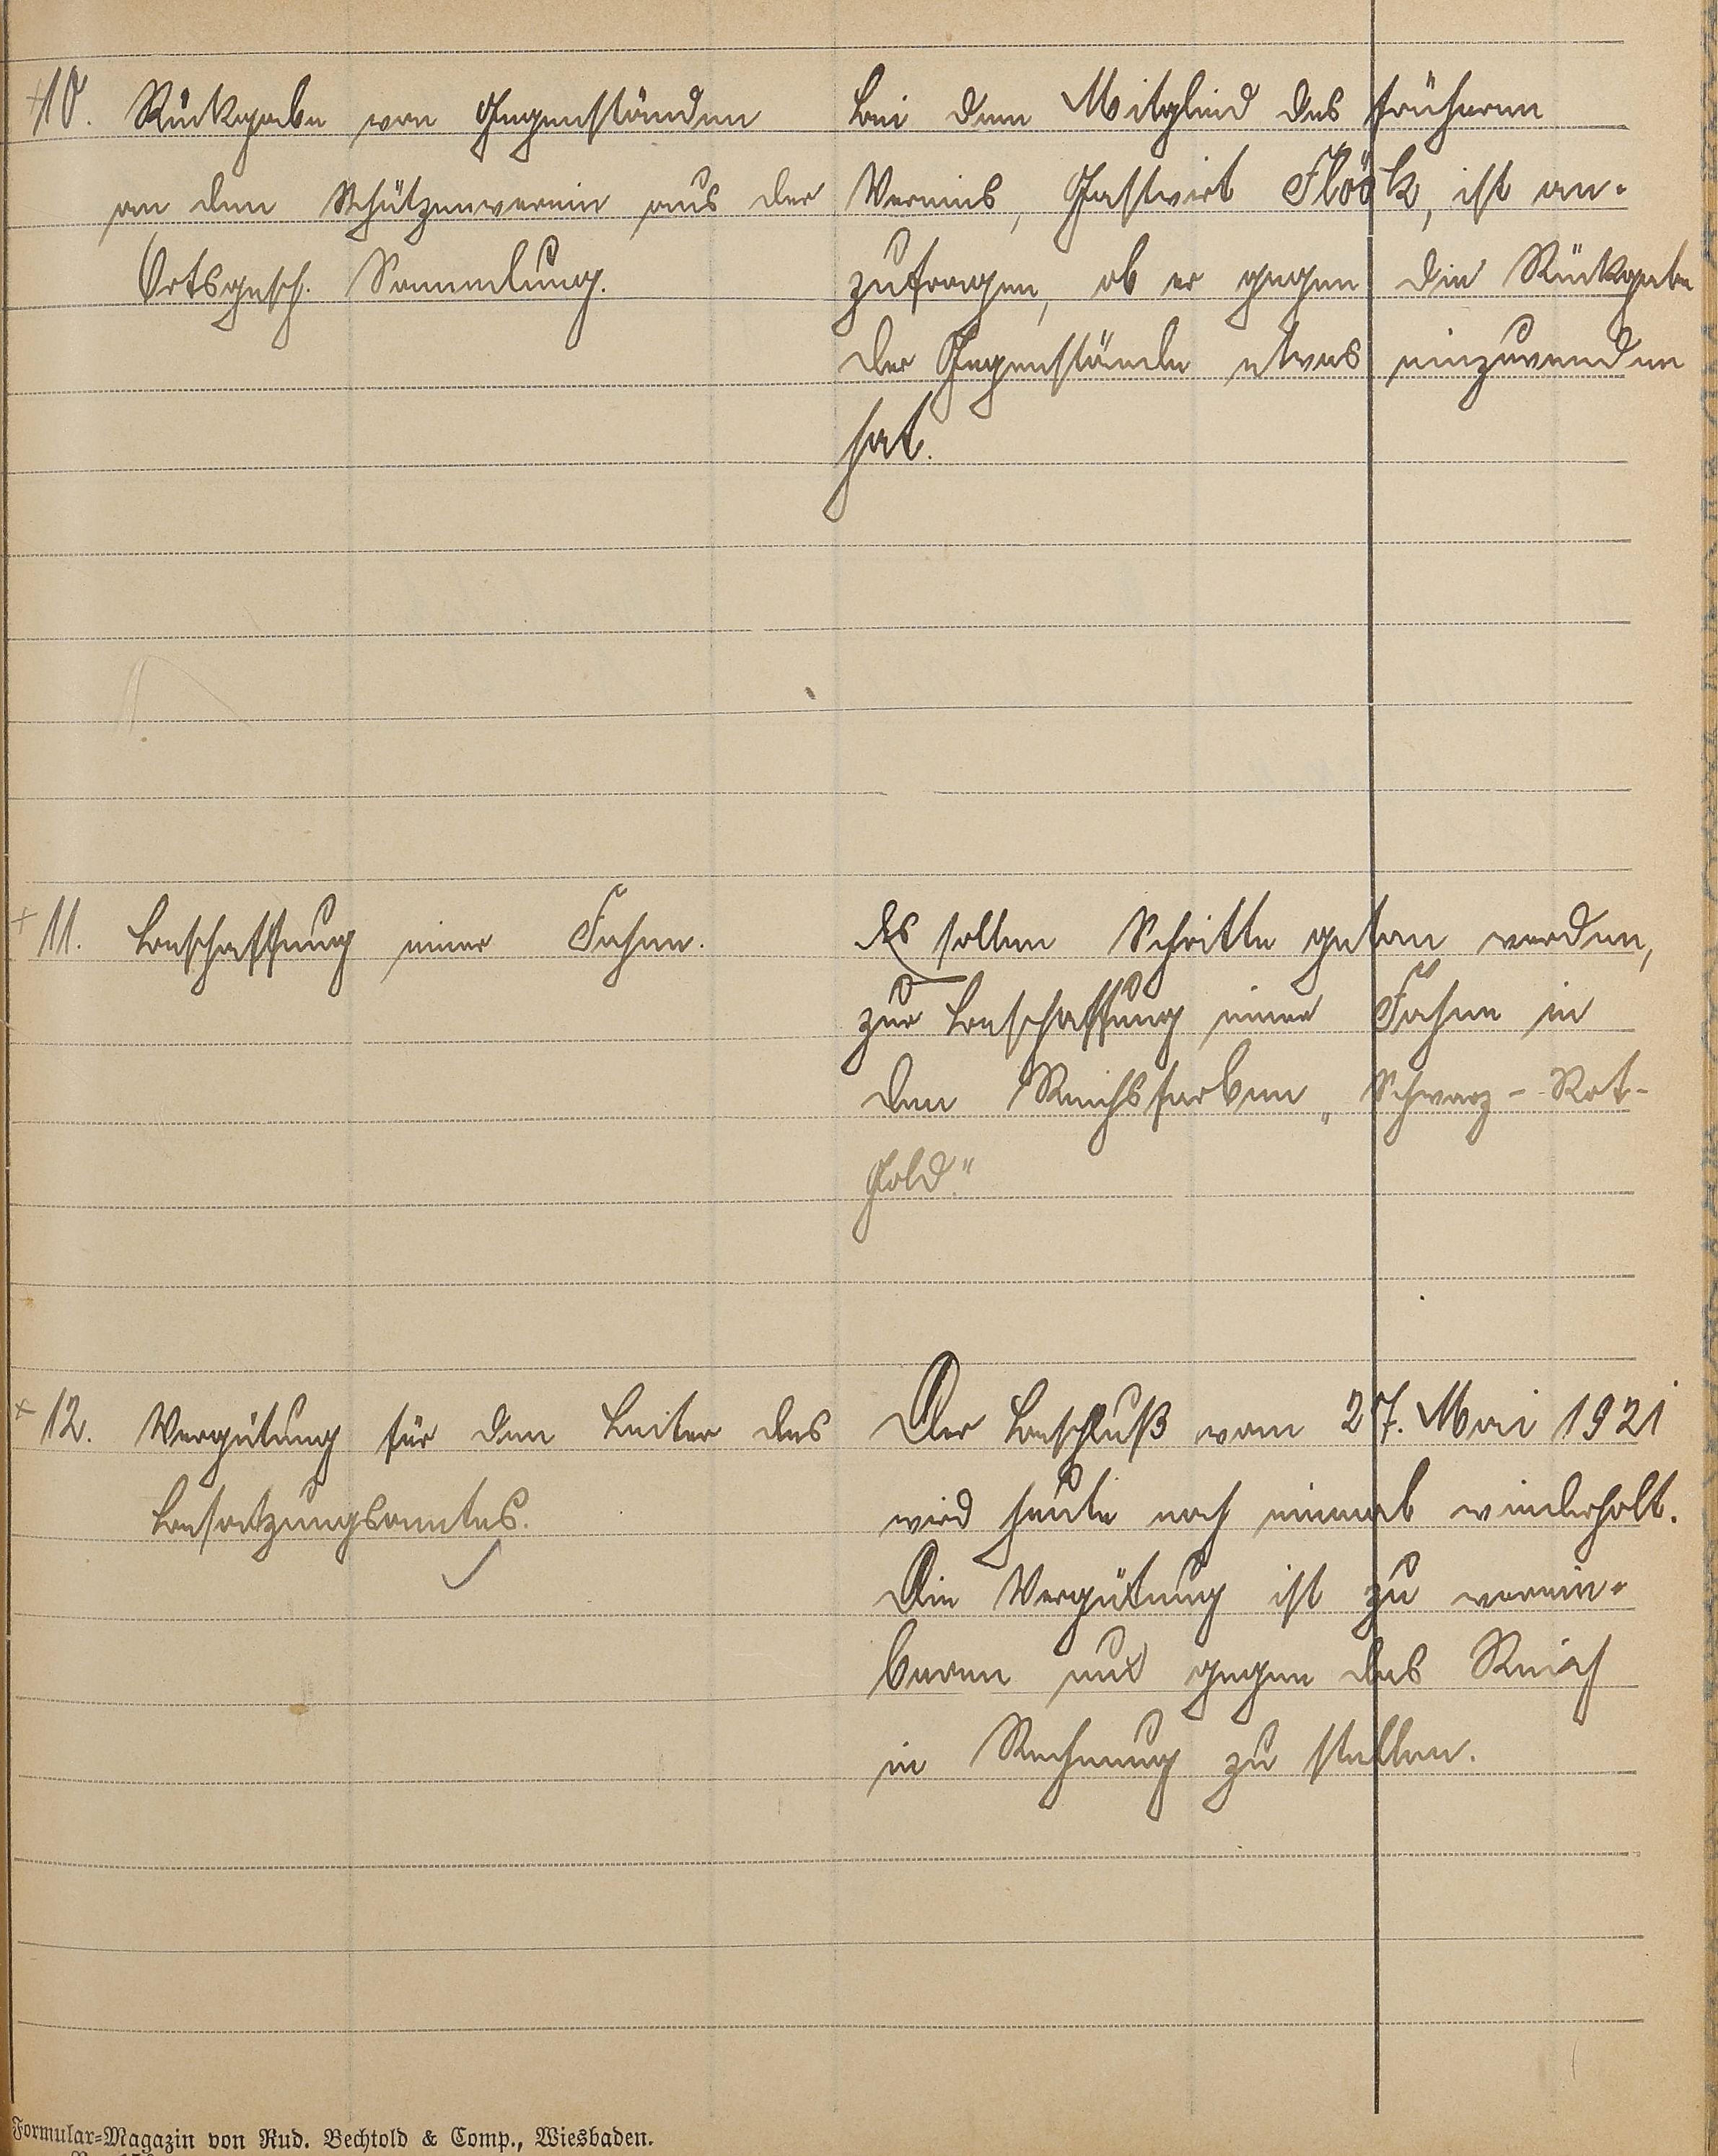 10. Rückgabe von Gegenständen
an den Schützenverein aus der
Ortsgesch. Sammlung.
Bei dem Mitglied des früheren
Vereins, Gastwirt Flöck, ist an-
zufragen, ob er gegen die Rückgabe
der Gegenstände etwas einzuwenden
hat.
11. Beschaffung einer Fahne.
Es sollen Schritte getan werden,
zur Beschaffung einer Fahne in
den Reichsfarben „Schwarz-Rot-
Gold."
12. Vergütung für den Leiter des
Besatzungsamtes.
Der Beschluß vom 27. Mai 1921
wird heute noch einmal wiederholt.
Die Vergütung ist zu verein-
baren und gegen das Reich
in Rechnung zu stellen.
Formular-Magazin von Rud. Bechtold & Comp., Wiesbaden.